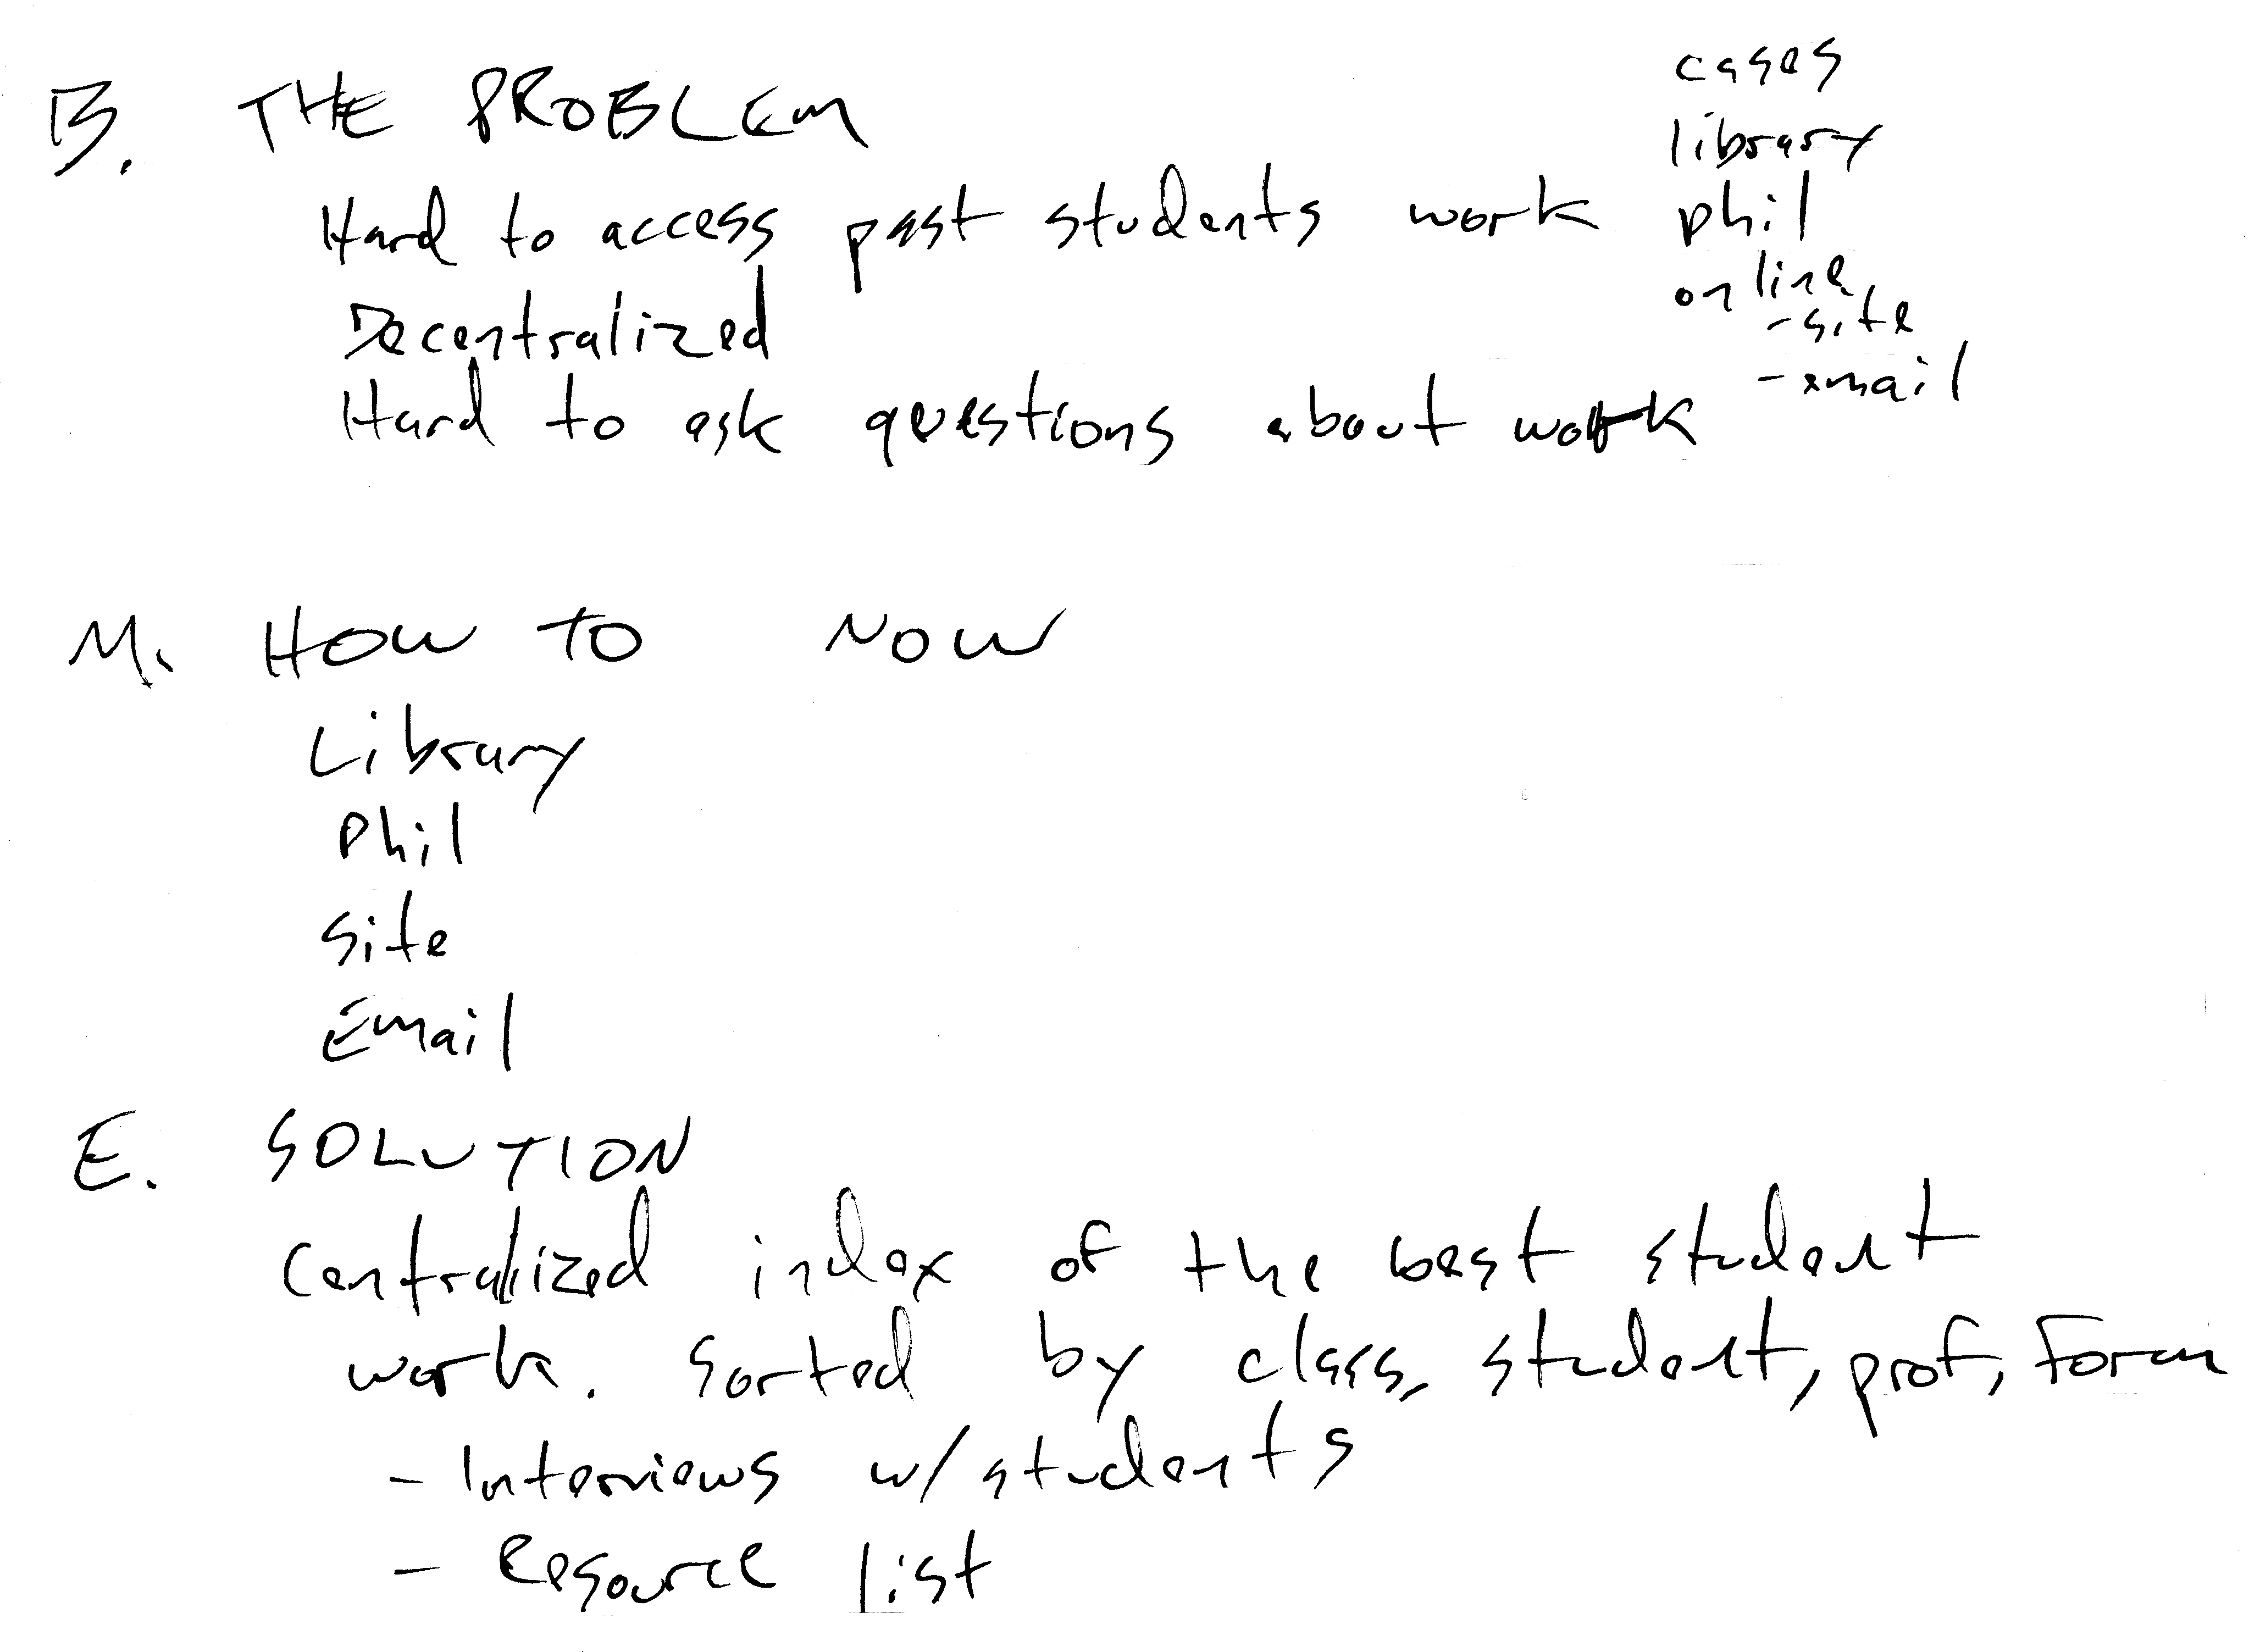 B. THE PROBLEM
Hard to access past students work
Decentralized
Hard to ask questions about work
cases
library
phil
online
- site
- email
M. HOW TO NOW
Library
Phil
Site
Email
E. SOLUTION
Centralized index of the best student
work. Sorted by class, student, prof, Form
- Interviews w/ students
- Resource list